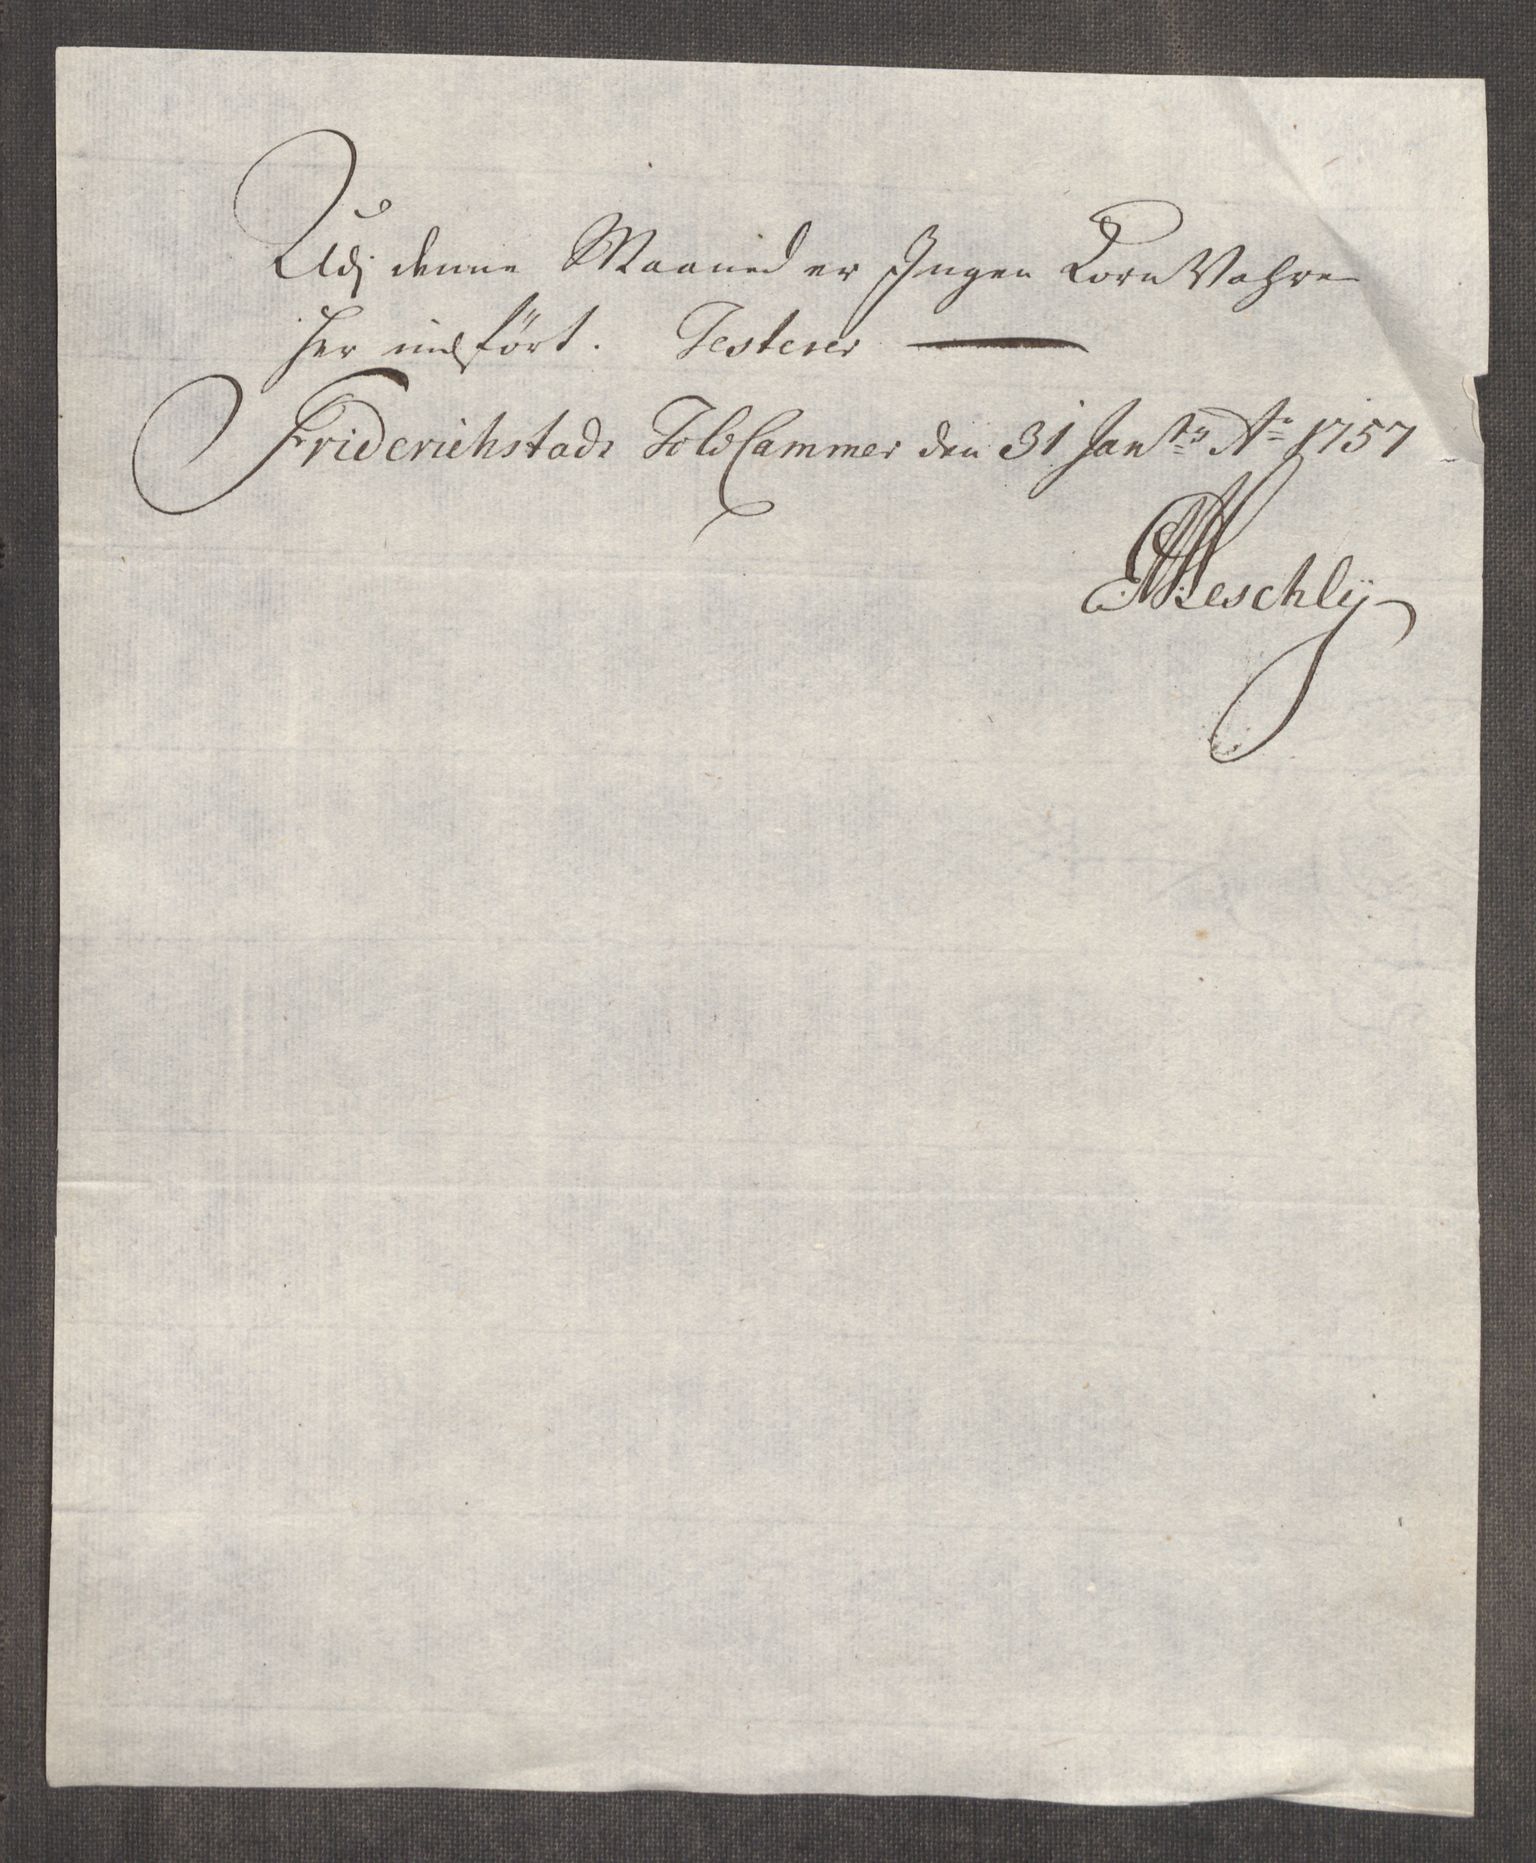 Udj denne Maaned er Ingen Korn Vahre
her indført. Testerer
Friderichstads Told Cammer den 31 Jan. Ao 1757